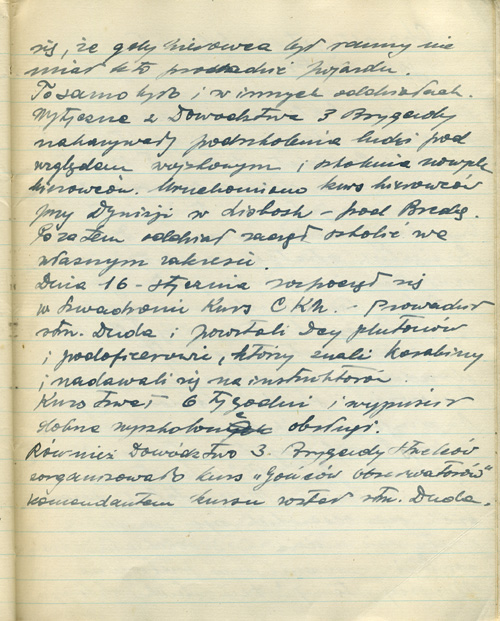 się, że gdy kierowca był ranny nie
miał kto prowadzić pojazdu.
To samo było i w innych oddziałach.
Wytyczne z Dowództwa 3 Brygady
nakazywały podszkolenia ludzi pod
względem wojskowym i szkolenia nowych
kierowców. Uruchomiono kurs kierowców
przy Dywizji w - pod Bredą.
Poza tem oddział zaczął szkolić we
własnym zakresie.
Dnia 16 - stycznia rozpoczął się
w Szwadronie Kurs C.K.M. - Prowadził
st. Duda i powstali D-cy plutonów
i podoficerowie, którzy znali Karabiny
i nadawali się na instruktorów.
Kurs trwał 6 tygodni i wypuścił
dobrze wyszkoloną obsługę.
Również Dowództwo 3. Brygady Strzelców
zorganizowało kurs "Gońców obserwatorów"
Komendantem kursu został Duda.